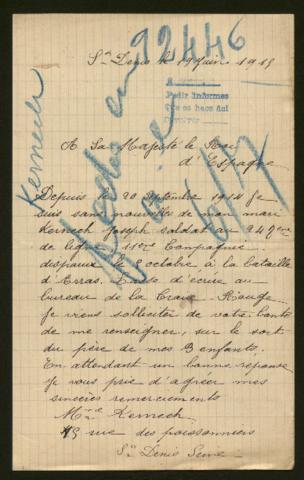 92446
St Denis le 19 Juin 1915
Pedir informes
Que se hace del
Kernech
A Sa Majesté le Roi
d'Espagne
Depuis le 20 Septembre 1914 Je
suis sans nouvelles de mon mari
Kernech Joseph soldat au 247eme
de ligne 11eme Compagnie
disparus le 2 octobre à la bataille
d'Arras. d'écrire au
bureau de la Croix Rouge
Je viens solliciter de votre bonté
de me renseigner, sur le sort
du père de mes 3 enfants.
En attendant un bonne reponse
Je vous prie d'agréer mes
sincères remerciements
Mme Kernech
rue des poissonniers
St Denis Seine